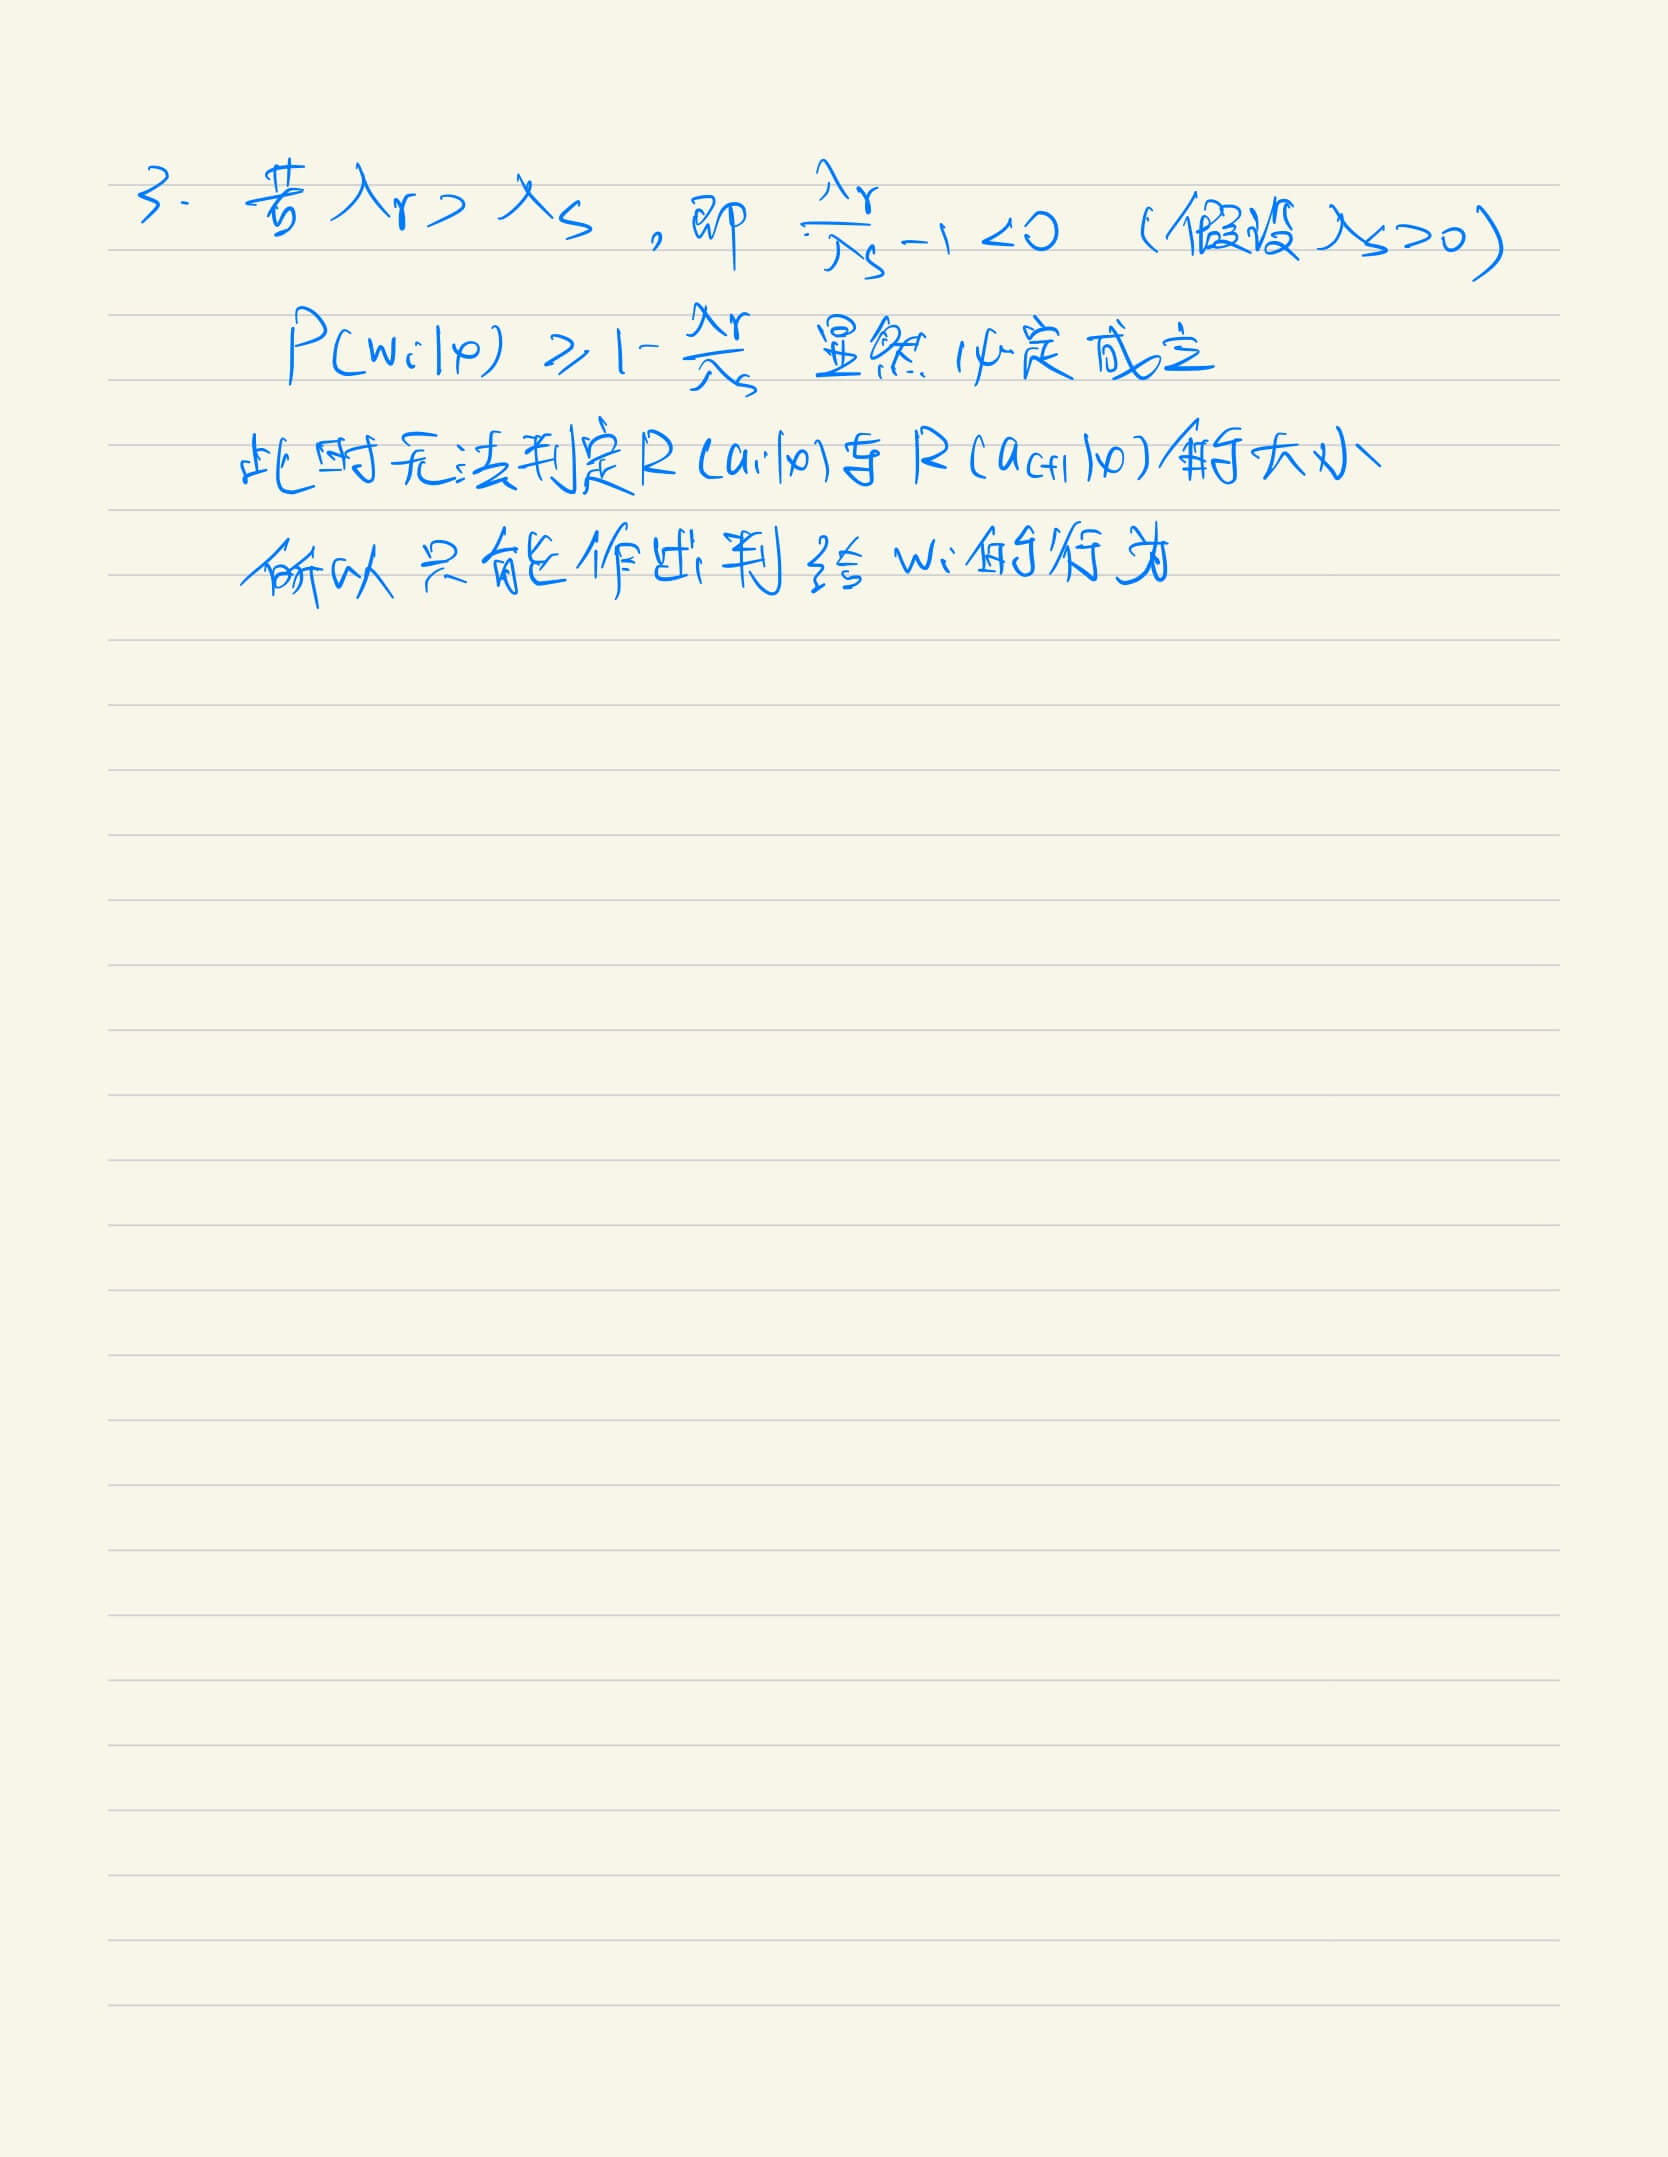 3. 若 λr > λs , 即 λr/λs - 1 < 0 (假设 λs > 0)
P(wi|x) ≥ 1 - λr/λs 显然必定成立
此时无法判定 R(ai|x) 与 R(ac+1|x) 的大小
所以只能作出判给 wi 的行为